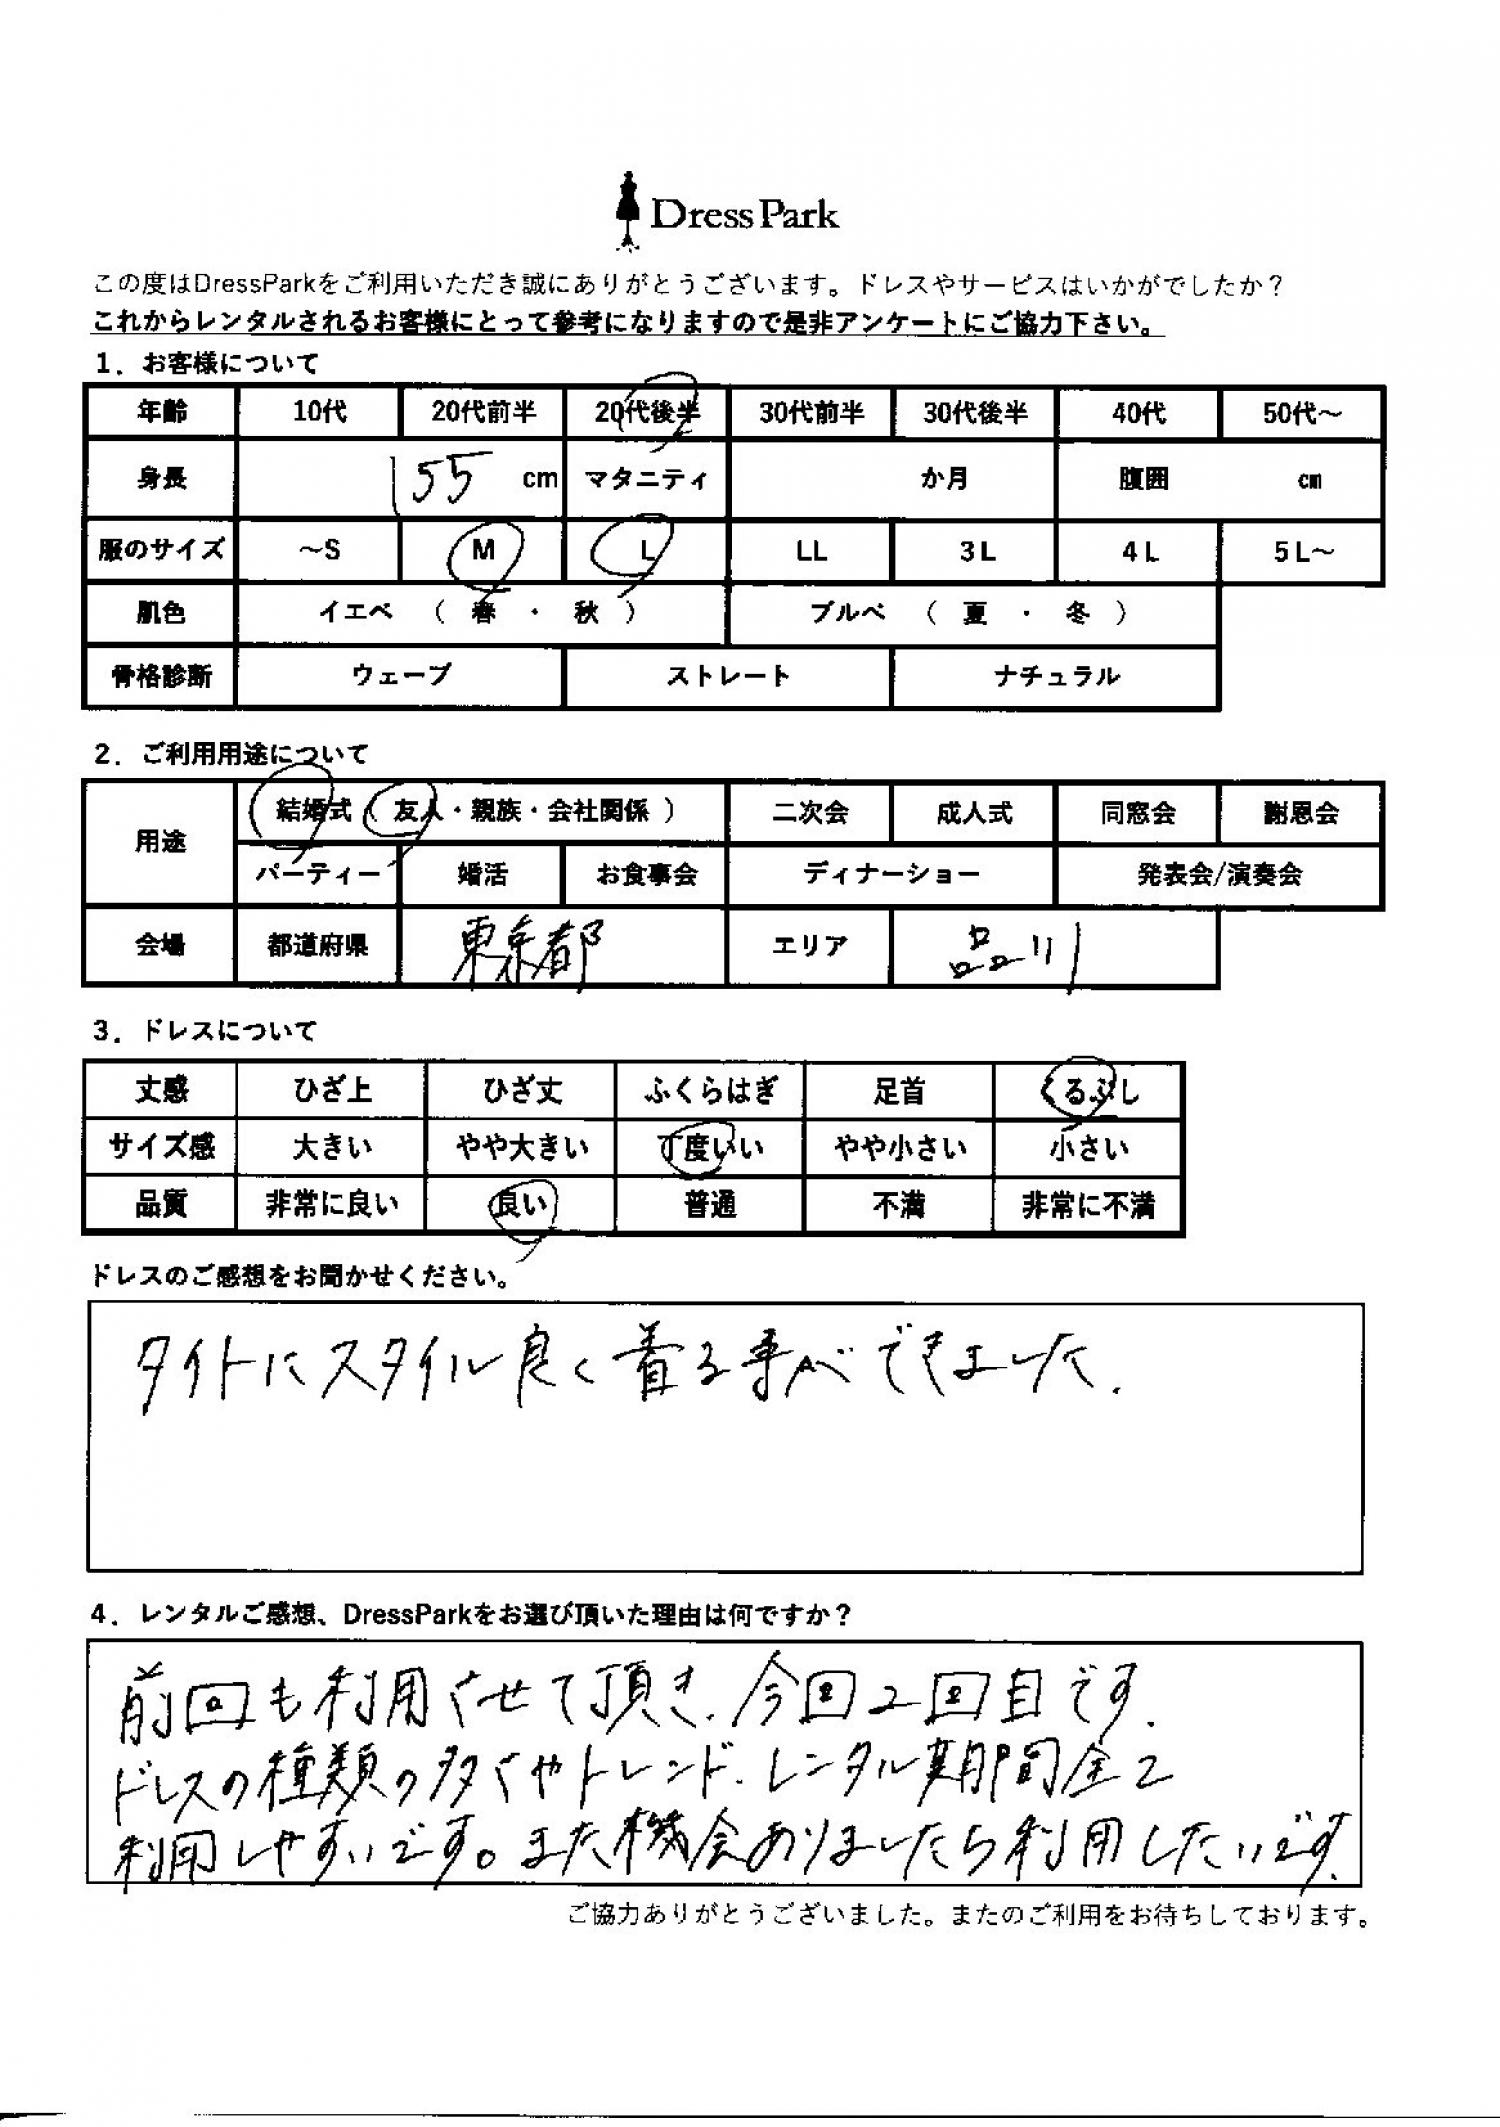 DressPark
この度はDressParkをご利用いただき誠にありがとうございます。ドレスやサービスはいかがでしたか？
これからレンタルされるお客様にとって参考になりますので是非アンケートにご協力下さい。
1．お客様について
年齢 10代 20代前半 20代後半 30代前半 30代後半 40代 50代～
身長 155 cm マタニティ か月 腹囲 cm
服のサイズ ～S M L LL 3L 4L 5L～
肌色 イエベ （ 春 ・ 秋 ） ブルベ （ 夏 ・ 冬 ）
骨格診断 ウェーブ ストレート ナチュラル
2．ご利用用途について
用途 結婚式（友人・親族・会社関係 ） 二次会 成人式 同窓会 謝恩会
パーティー 婚活 お食事会 ディナーショー 発表会/演奏会
会場 都道府県 東京都 エリア 品川
3．ドレスについて
丈感 ひざ上 ひざ丈 ふくらはぎ 足首 くるぶし
サイズ感 大きい やや大きい 丁度いい やや小さい 小さい
品質 非常に良い 良い 普通 不満 非常に不満
ドレスのご感想をお聞かせください。
タイトにスタイル良く着る事ができました.
4．レンタルご感想、DressParkをお選び頂いた理由は何ですか？
前回も利用させて頂き、今回2回目です.
ドレスの種類の多さやトレンド、レンタル期間全て
利用しやすいです。また機会ありましたら利用したいです.
ご協力ありがとうございました。またのご利用をお待ちしております。